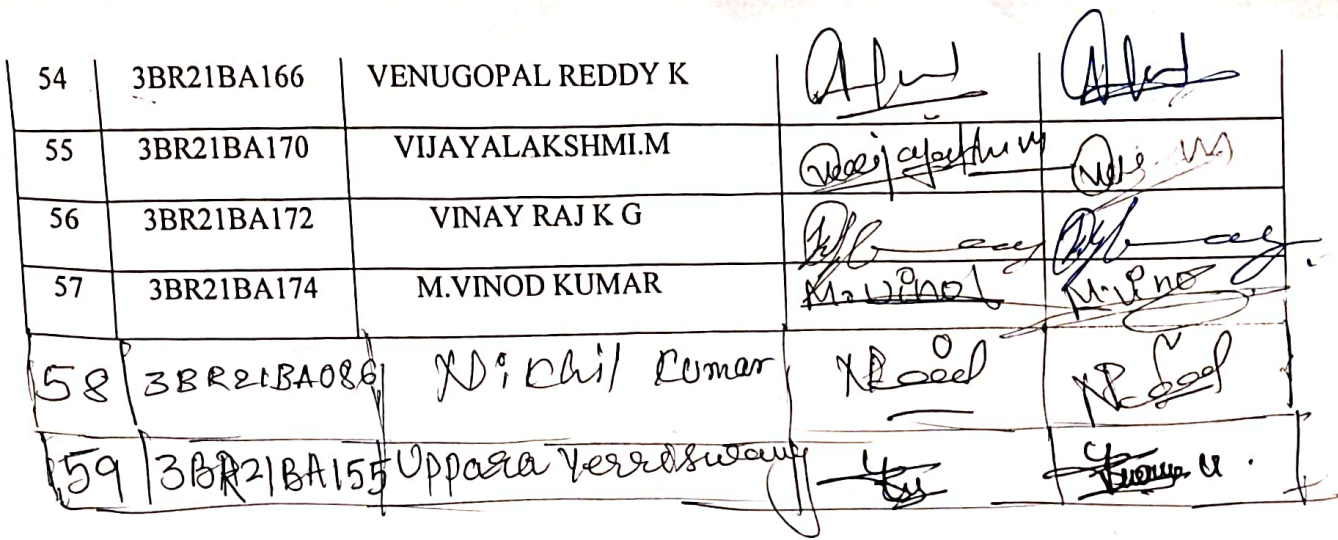 54 3BR21BA166 VENUGOPAL REDDY K
55 3BR21BA170 VIJAYALAKSHMI.M
56 3BR21BA172 VINAY RAJ K G
57 3BR21BA174 M.VINOD KUMAR M.Vinod M.Vino
58 3BR21BA086 Nikhil Kumar
59 3BR21BA155 Uppara Yerraswamy